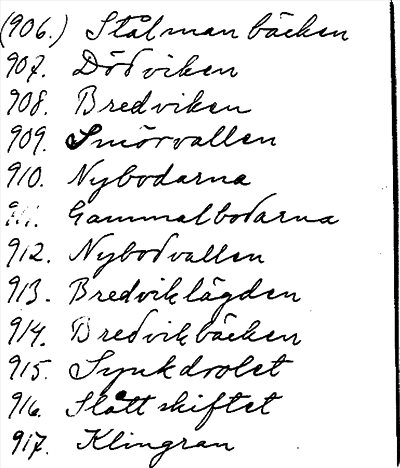 (906.) Stålmanbäcken
907. Dödviken
908. Bredviken
909. Smörvallen
910. Nybodarna
911. Gammalbodarna
912. Nybodvallen
913. Bredviklägden
914. Bredvikbäcken
915. Synkdrolet
916. Slåttskiftet
917. Klingran